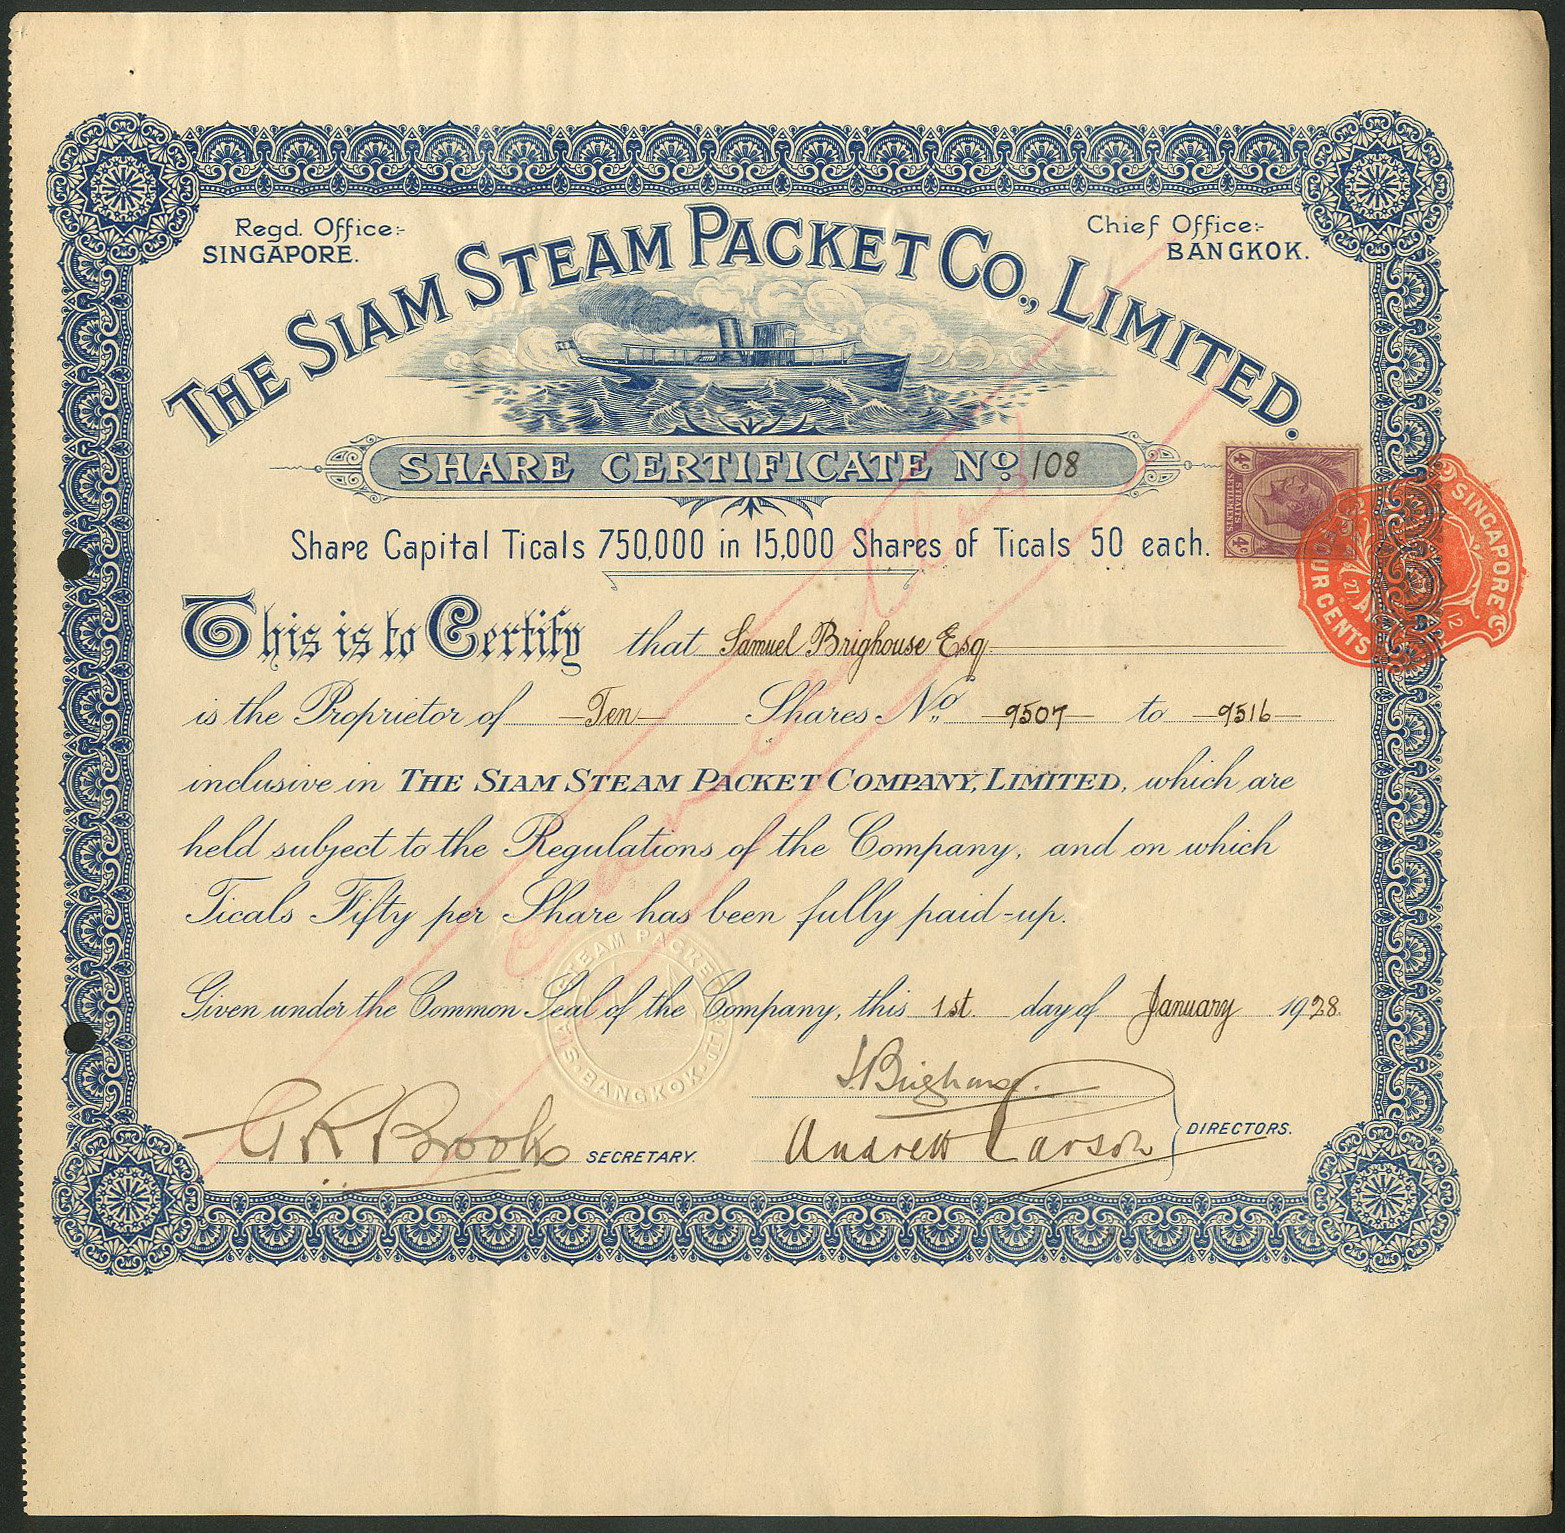 Regd. Office:-
SINGAPORE.
Chief Office:-
BANGKOK.
THE SIAM STEAM PACKET CO., LIMITED.
SHARE CERTIFICATE No. 108
Share Capital Ticals 750,000 in 15,000 Shares of Ticals 50 each.
4c STRAITS SETTLEMENTS 4c
SINGAPORE
FOUR CENTS
27
12
This is to Certify that Samuel Brighouse Esq
is the Proprietor of —Ten— Shares Nos. —9507— to —9516—
inclusive in THE SIAM STEAM PACKET COMPANY, LIMITED, which are
held subject to the Regulations of the Company, and on which
Ticals Fifty per Share has been fully paid-up.
Cancelled
Given under the Common Seal of the Company, this 1st. day of January 1928.
SIAM STEAM PACKET CO. LTD
BANGKOK.
S. Brighouse.
SECRETARY.
DIRECTORS.